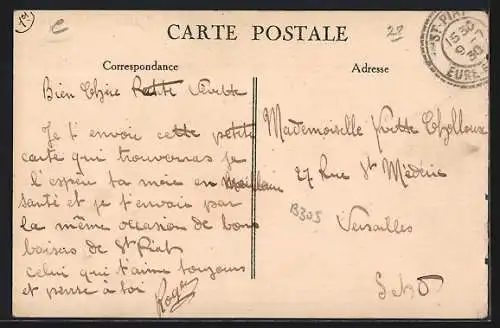 CARTE POSTALE
28
Correspondance
Adresse
ST-PIAT
15 30
9 -7
30
EURE
Bien Chère Petite Yvette
Je t'envoie cette petite
carte qui trouverras je
l'espère ta mère en
santé et je t'envoie par
la même occasion de bons
baisers de St Piat
celui qui t'aime toujours
et pense à toi
Roger
Mademoiselle Yvette
27 Rue St Médéric
B305
Versailles
S et O